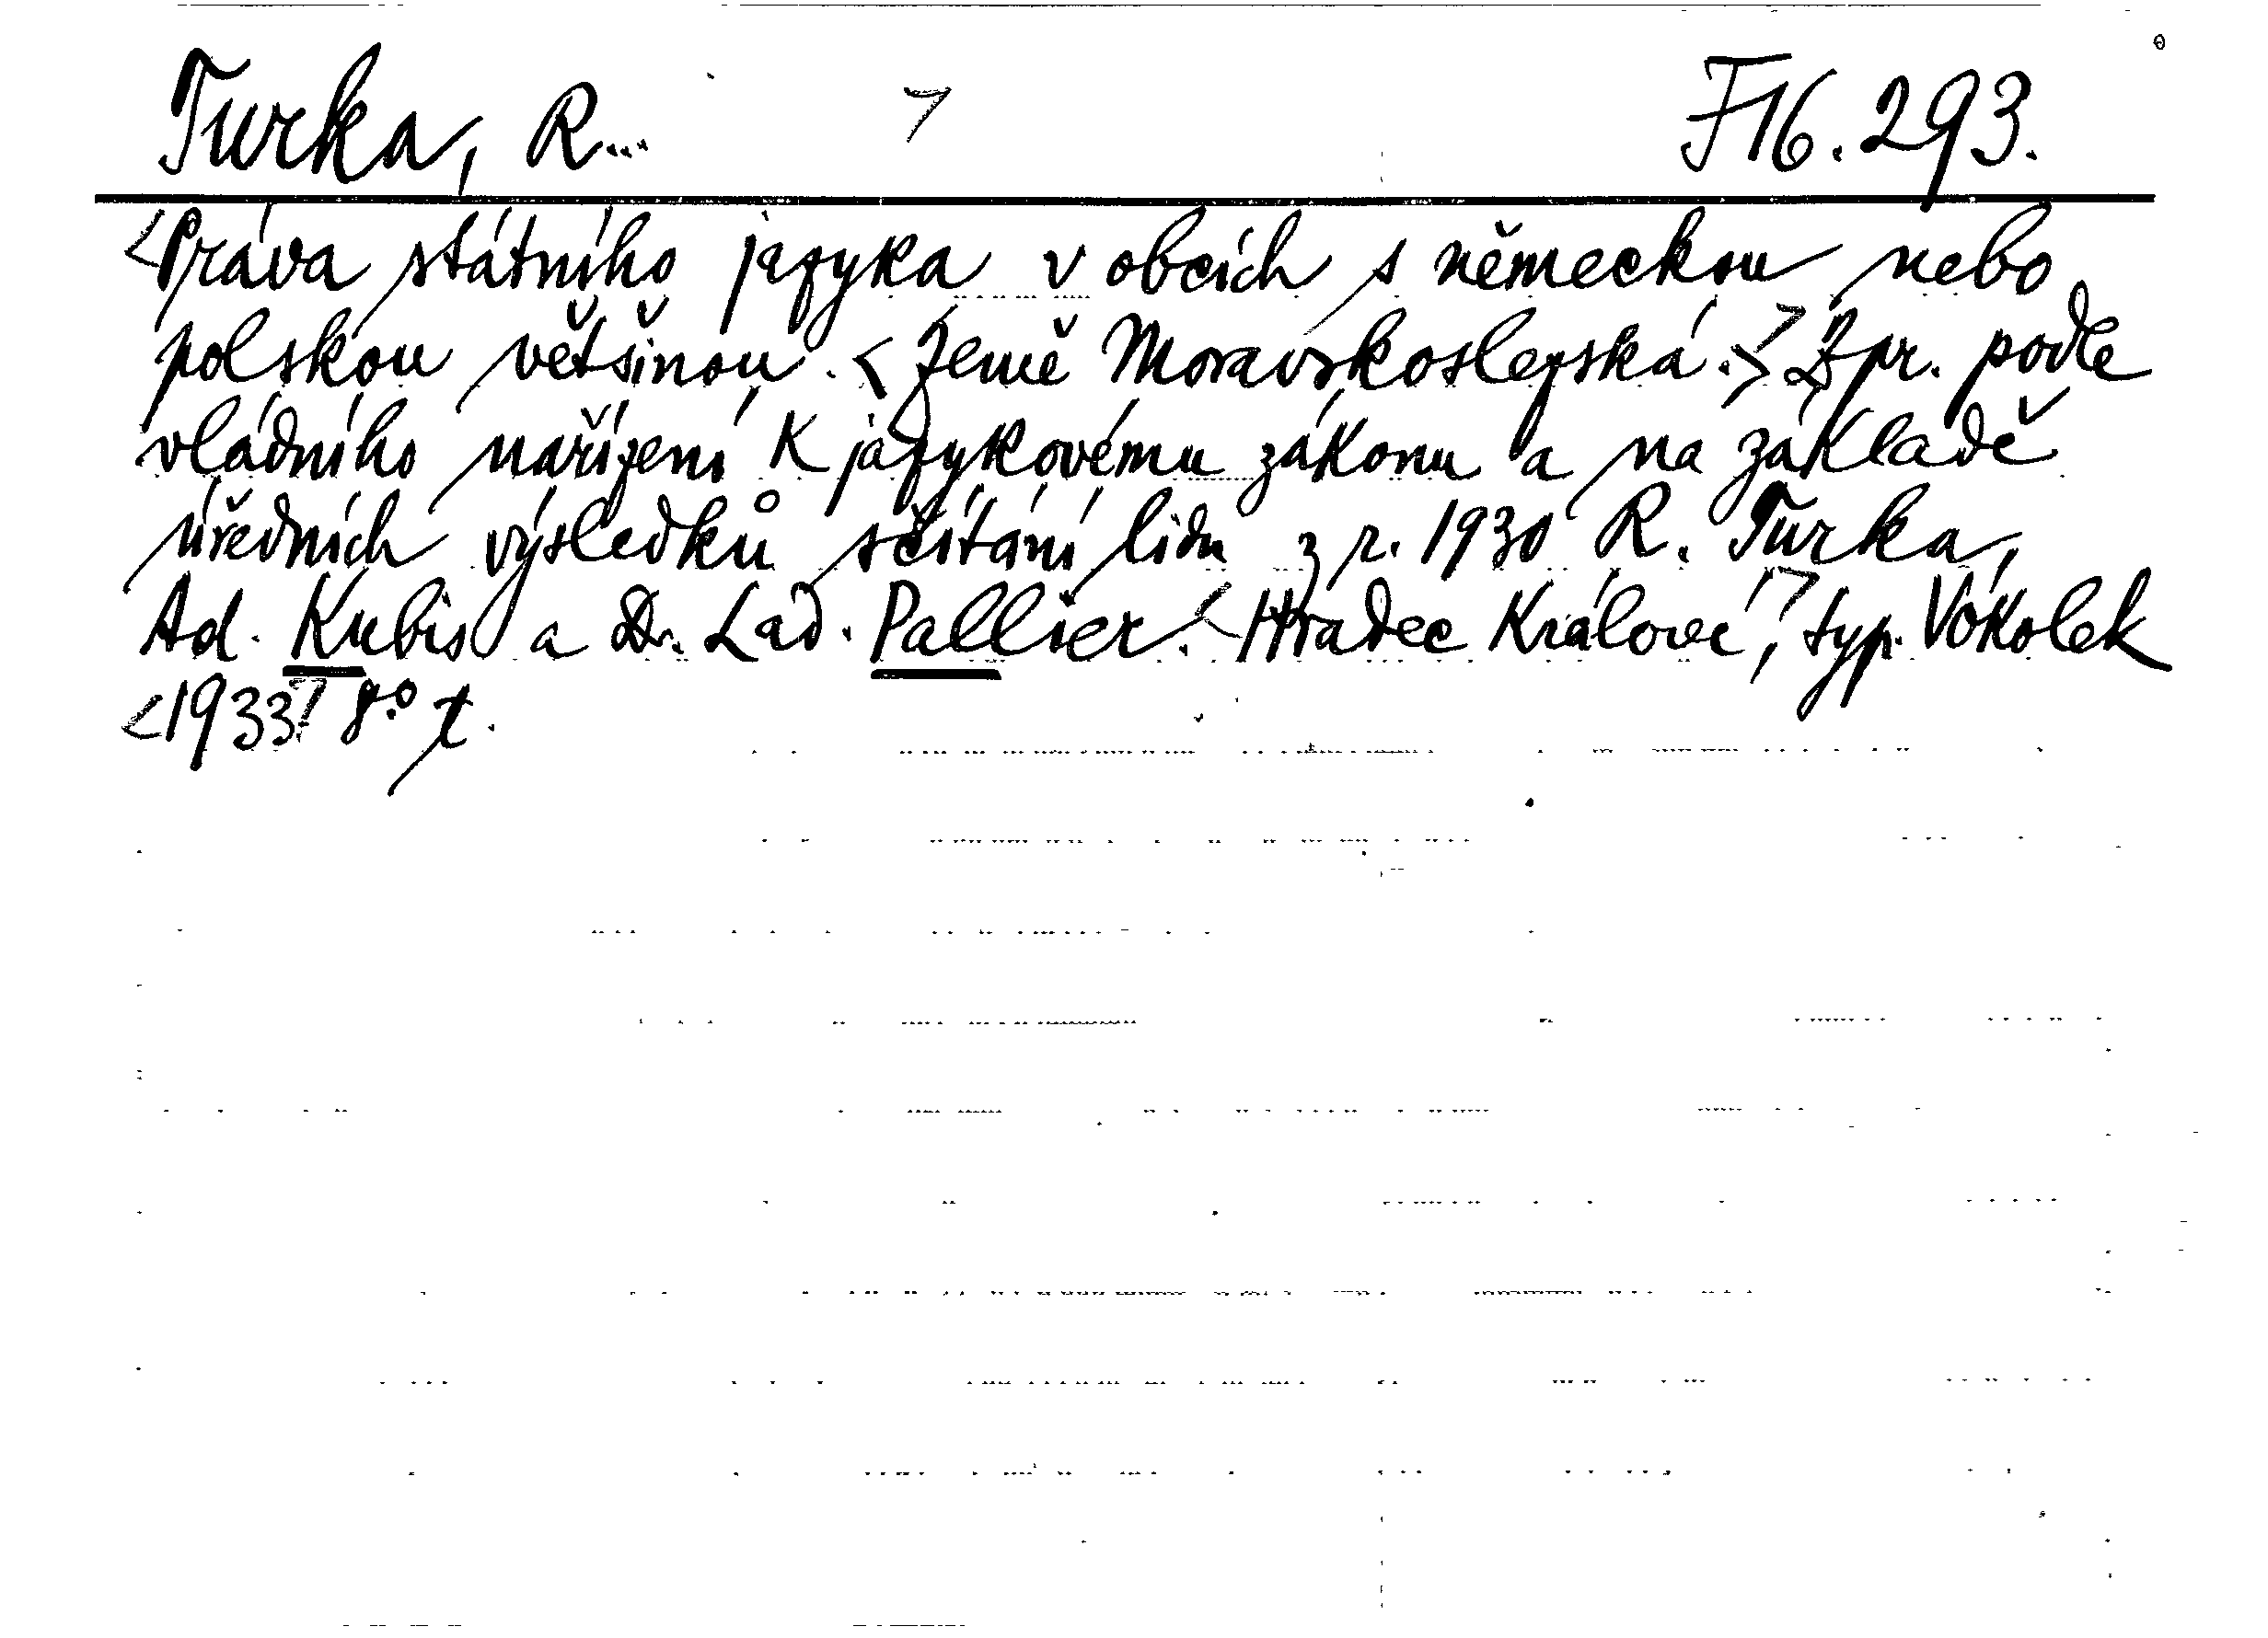 Turka, R... > F 16.293.
<Práva státního jazyka v obcích s německou nebo
polskou většinou. < Země Moravskoslezská.> Zpr. podle
vládního nařízení k jazykovému zákonu a na základě
úředních výsledků sčítání lidu z r. 1930 R. Turka,
Ad. Kubis a Dr. Lad. Pallier. <Hradec Králové,> typ. Vokolek
<1933> 8° t.